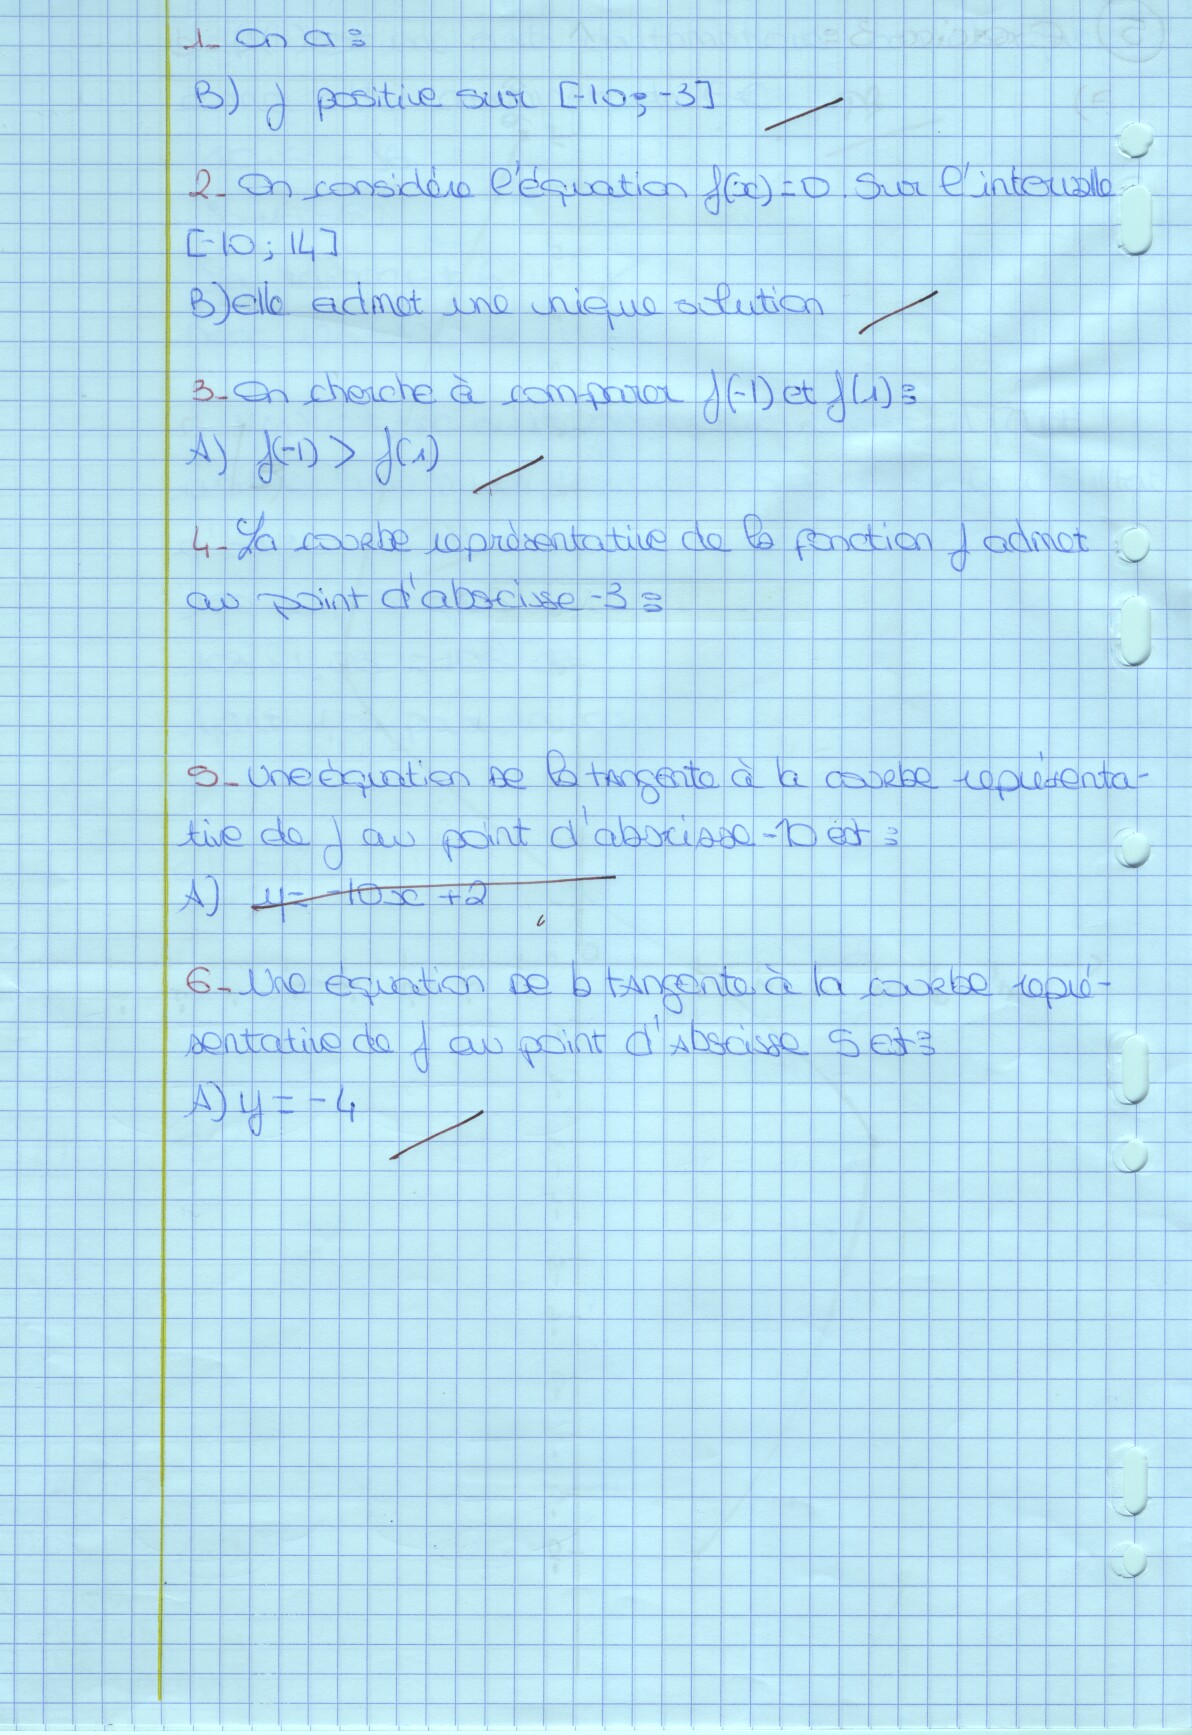 1- On a :
B) f positive sur [-10 ; -3]
2- On considère l'équation f(x) = 0. Sur l'intervalle
[-10 ; 14]
B) elle admet une unique solution
3- On cherche à comparer f(-1) et f(1) :
A) f(-1) > f(1)
4- La courbe représentative de la fonction f admet
au point d'abscisse -3 :
5- Une équation de la tangente à la courbe représenta-
tive de f au point d'abscisse -10 est :
A) y = -10x + 2
6- Une équation de la tangente à la courbe repré-
sentative de f au point d'abscisse 5 est :
A) y = -4